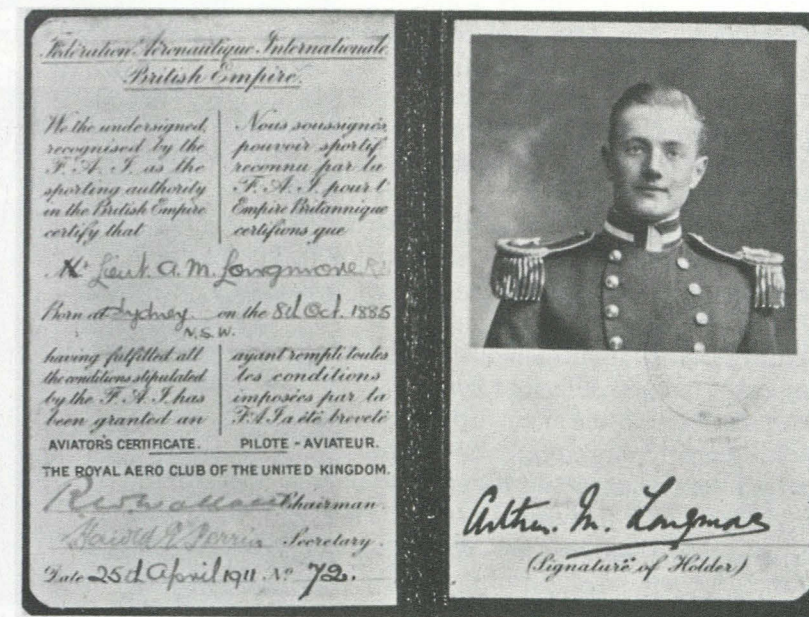 Fédération Aéronautique Internationale
British Empire.
We the undersigned,
recognised by the
F.A.I. as the
sporting authority
in the British Empire
certify that
Nous soussignés,
pouvoir sportif
reconnu par la
F.A.I. pour l'
Empire Britannique
certifions que
Mr Lieut. A. M. Longmore
Born at Sydney. on the 8th Oct. 1885
N.S.W.
having fulfilled all
the conditions stipulated
by the F.A.I. has
been granted an
AVIATOR'S CERTIFICATE.
ayant rempli toutes
les conditions
imposées par la
F.A.I a été breveté
PILOTE - AVIATEUR.
THE ROYAL AERO CLUB OF THE UNITED KINGDOM.
Chairman.
Harold E Perrin Secretary.
Date 25th April 1911. No 72.
Arthur. M. Longmore
(Signature of Holder)